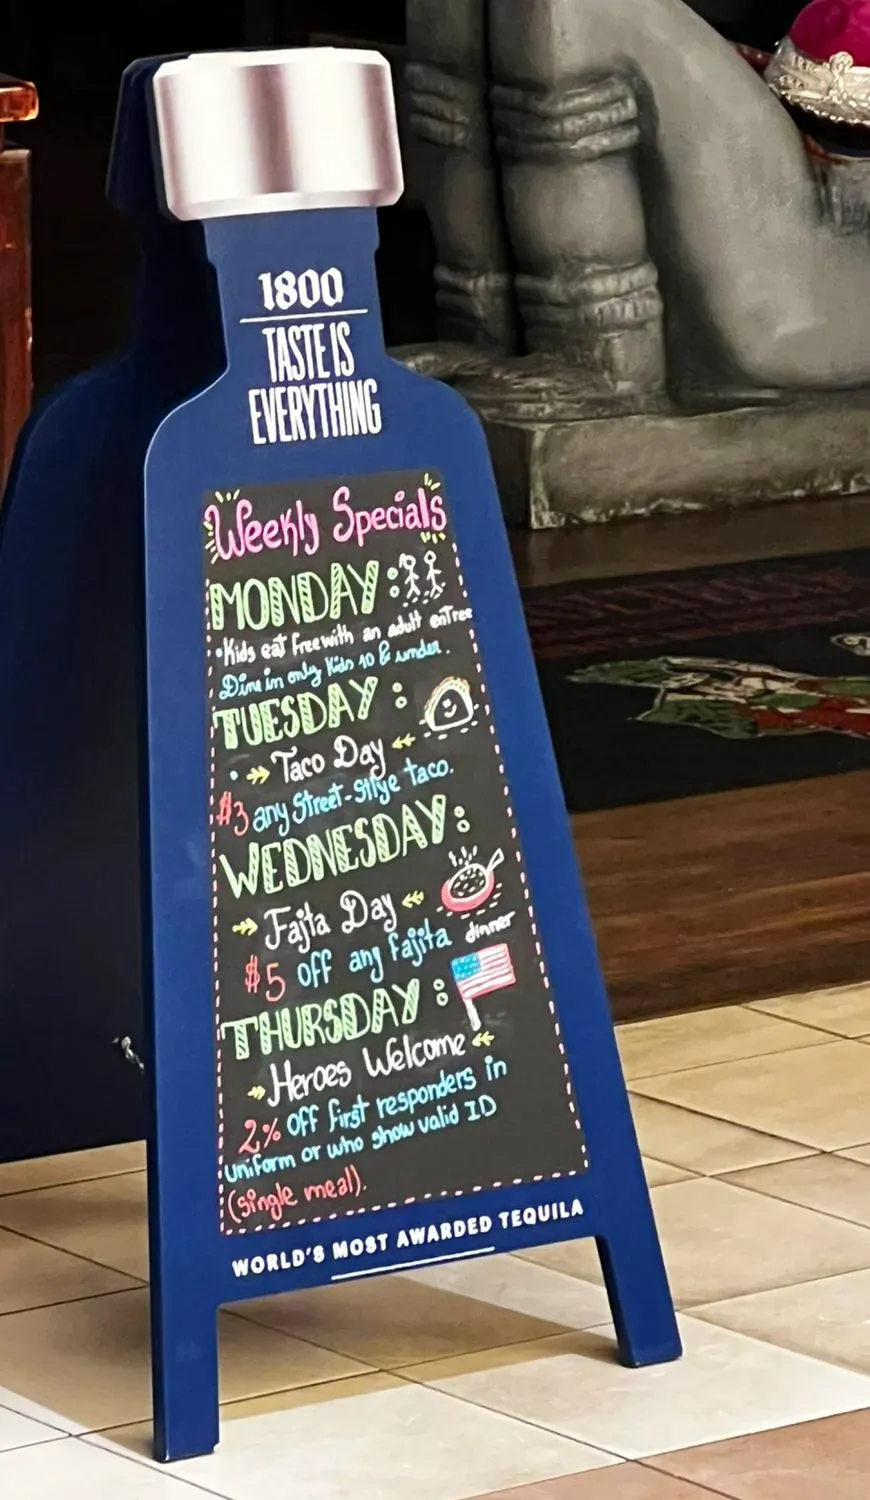 1800
TASTE IS
EVERYTHING
Weekly Specials
MONDAY:
•Kids eat free with an adult enTree
Dine in only Kids 10 & under.
TUESDAY:
• Taco Day
$3 any Street-Stlye taco.
WEDNESDAY:
Fajita Day
$5 off any fajita dinner
THURSDAY:
Heroes Welcome
2% off first responders in
uniform or who show valid ID
(single meal).
WORLD'S MOST AWARDED TEQUILA